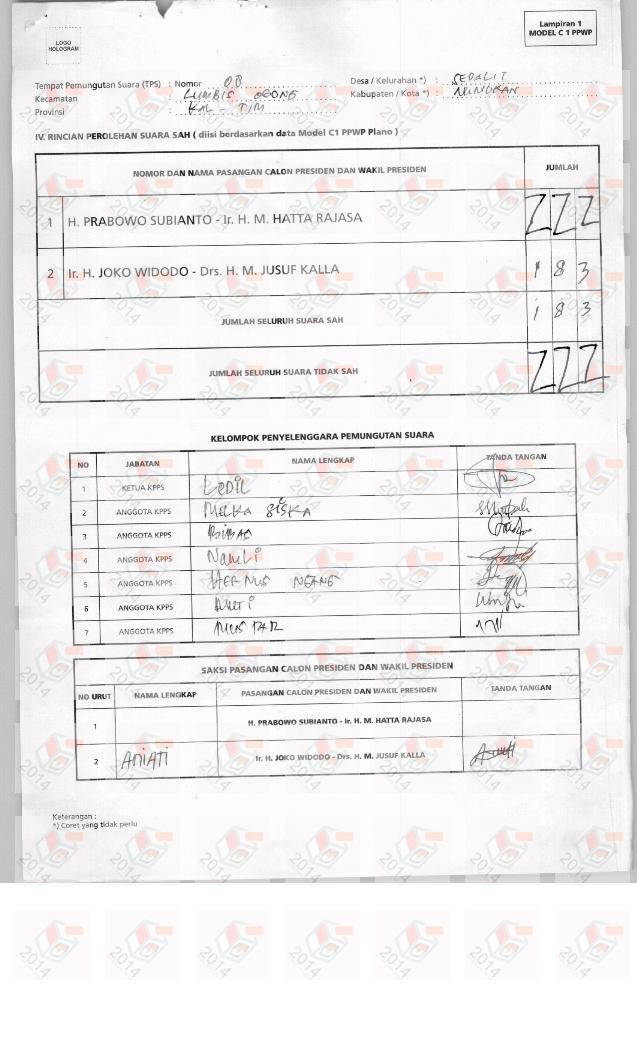 Lampiran 1
MODEL C 1 PPWP
LOGO
HOLOGRAM
Tempat Pemungutan Suara (TPS) : Nomor 08 Desa / Kelurahan *) : SEDALIT
Kecamatan : LUMBIS OGONG Kabupaten / Kota *) : NUNUKAN
Provinsi : KAL - TIM
IV. RINCIAN PEROLEHAN SUARA SAH ( diisi berdasarkan data Model C1 PPWP Plano )
NOMOR DAN NAMA PASANGAN CALON PRESIDEN DAN WAKIL PRESIDEN JUMLAH
1 H. PRABOWO SUBIANTO - Ir. H. M. HATTA RAJASA
2 Ir. H. JOKO WIDODO - Drs. H. M. JUSUF KALLA 1 8 3
JUMLAH SELURUH SUARA SAH 1 8 3
JUMLAH SELURUH SUARA TIDAK SAH
KELOMPOK PENYELENGGARA PEMUNGUTAN SUARA
NO JABATAN NAMA LENGKAP TANDA TANGAN
1 KETUA KPPS LEDIL
2 ANGGOTA KPPS MELKA SISKA
3 ANGGOTA KPPS
4 ANGGOTA KPPS NAWLI
5 ANGGOTA KPPS
6 ANGGOTA KPPS
7 ANGGOTA KPPS
SAKSI PASANGAN CALON PRESIDEN DAN WAKIL PRESIDEN
NO URUT NAMA LENGKAP PASANGAN CALON PRESIDEN DAN WAKIL PRESIDEN TANDA TANGAN
1 H. PRABOWO SUBIANTO - Ir. H. M. HATTA RAJASA
2 ANIATI Ir. H. JOKO WIDODO - Drs. H. M. JUSUF KALLA
Keterangan :
*) Coret yang tidak perlu
2014